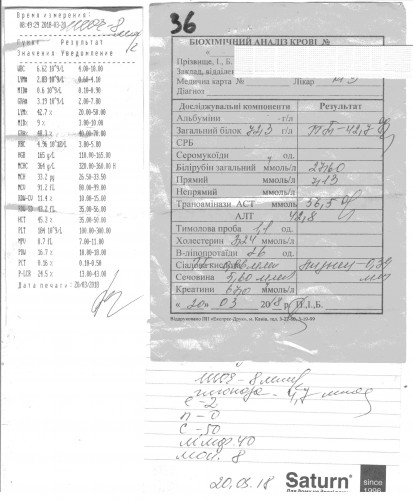 Время измерения:
08:49:29 2018-03-20
Пункт Результат
Значения Уведомление
WBC 6.62 10^9/L 4.00-10.00
LYM# 2.83 10^9/L 0.60-4.10
MID# 0.6 10^9/L 0.10-0.90
GRA# 3.19 10^9/L 2.00-7.80
LYM% 42.7 % 20.00-50.00
MID% 9 % 3.00-10.00
GRA% 48.3 % 40.00-70.00
RBC 4.96 10^12/L 3.80-5.80
HGB 165 g/L 110.00-165.00
MCHC 364 g/L 320.00-360.00 H
MCH 33.2 pg 26.50-33.50
MCV 91.2 fL 80.00-99.00
RDW-CV 11.4 % 10.00-15.00
RDW-SD 43.2 fL 35.00-56.00
HCT 45.3 % 35.00-50.00
PLT 184 10^9/L 100.00-300.00
MPV 8.7 fL 7.00-11.00
PDW 16.7 % 10.00-18.00
PCT 0.16 % 0.10-0.50
P-LCR 24.5 % 13.00-43.00
Дата печати: 20/03/2018
36
БІОХІМІЧНИЙ АНАЛІЗ КРОВІ №
Прізвище, І., Б.
Заклад, відділення
Медична карта № Лікар
Діагноз
Досліджувальні компоненти Результат
Альбуміни г/л
Загальний білок 82,3 г/л ПТІ-42,7
СРБ
Серомукоїди од.
Білірубін загальний ммоль/л 27,60
Прямий ммоль/л 7,13
Непрямий ммоль/л
Трансамінази АСТ ммоль/л 36,5
АЛТ 42,8
Тимолова проба 1,1 од.
Холестерин 3,24 ммоль/л
В-ліпопротаїди 26 од.
Сіалова кислота
Сечовина 5,60 ммоль/л
Креатини 67,0 ммоль/л
« 20 » 03 2018 р. П.,І.,Б.
ШОЕ - 8 мм/г
глюкоза - 4,7 ммол
е - 2
п - 0
с - 50
лимф. 40
мон. 8
20.03.18
Saturn®
since
1996